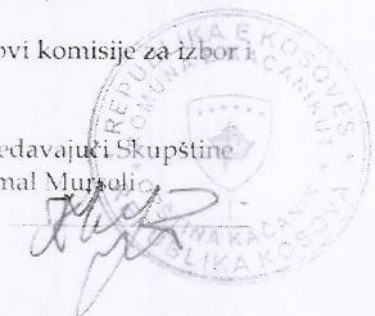 ovi komisije za izbor i
edavajući Skupštine
mal Murseli
REPUBLIKA E KOSOVËS
KOMUNA E KAÇANIKUT
OPŠTINA KAČANIK
REPUBLIKA KOSOVA